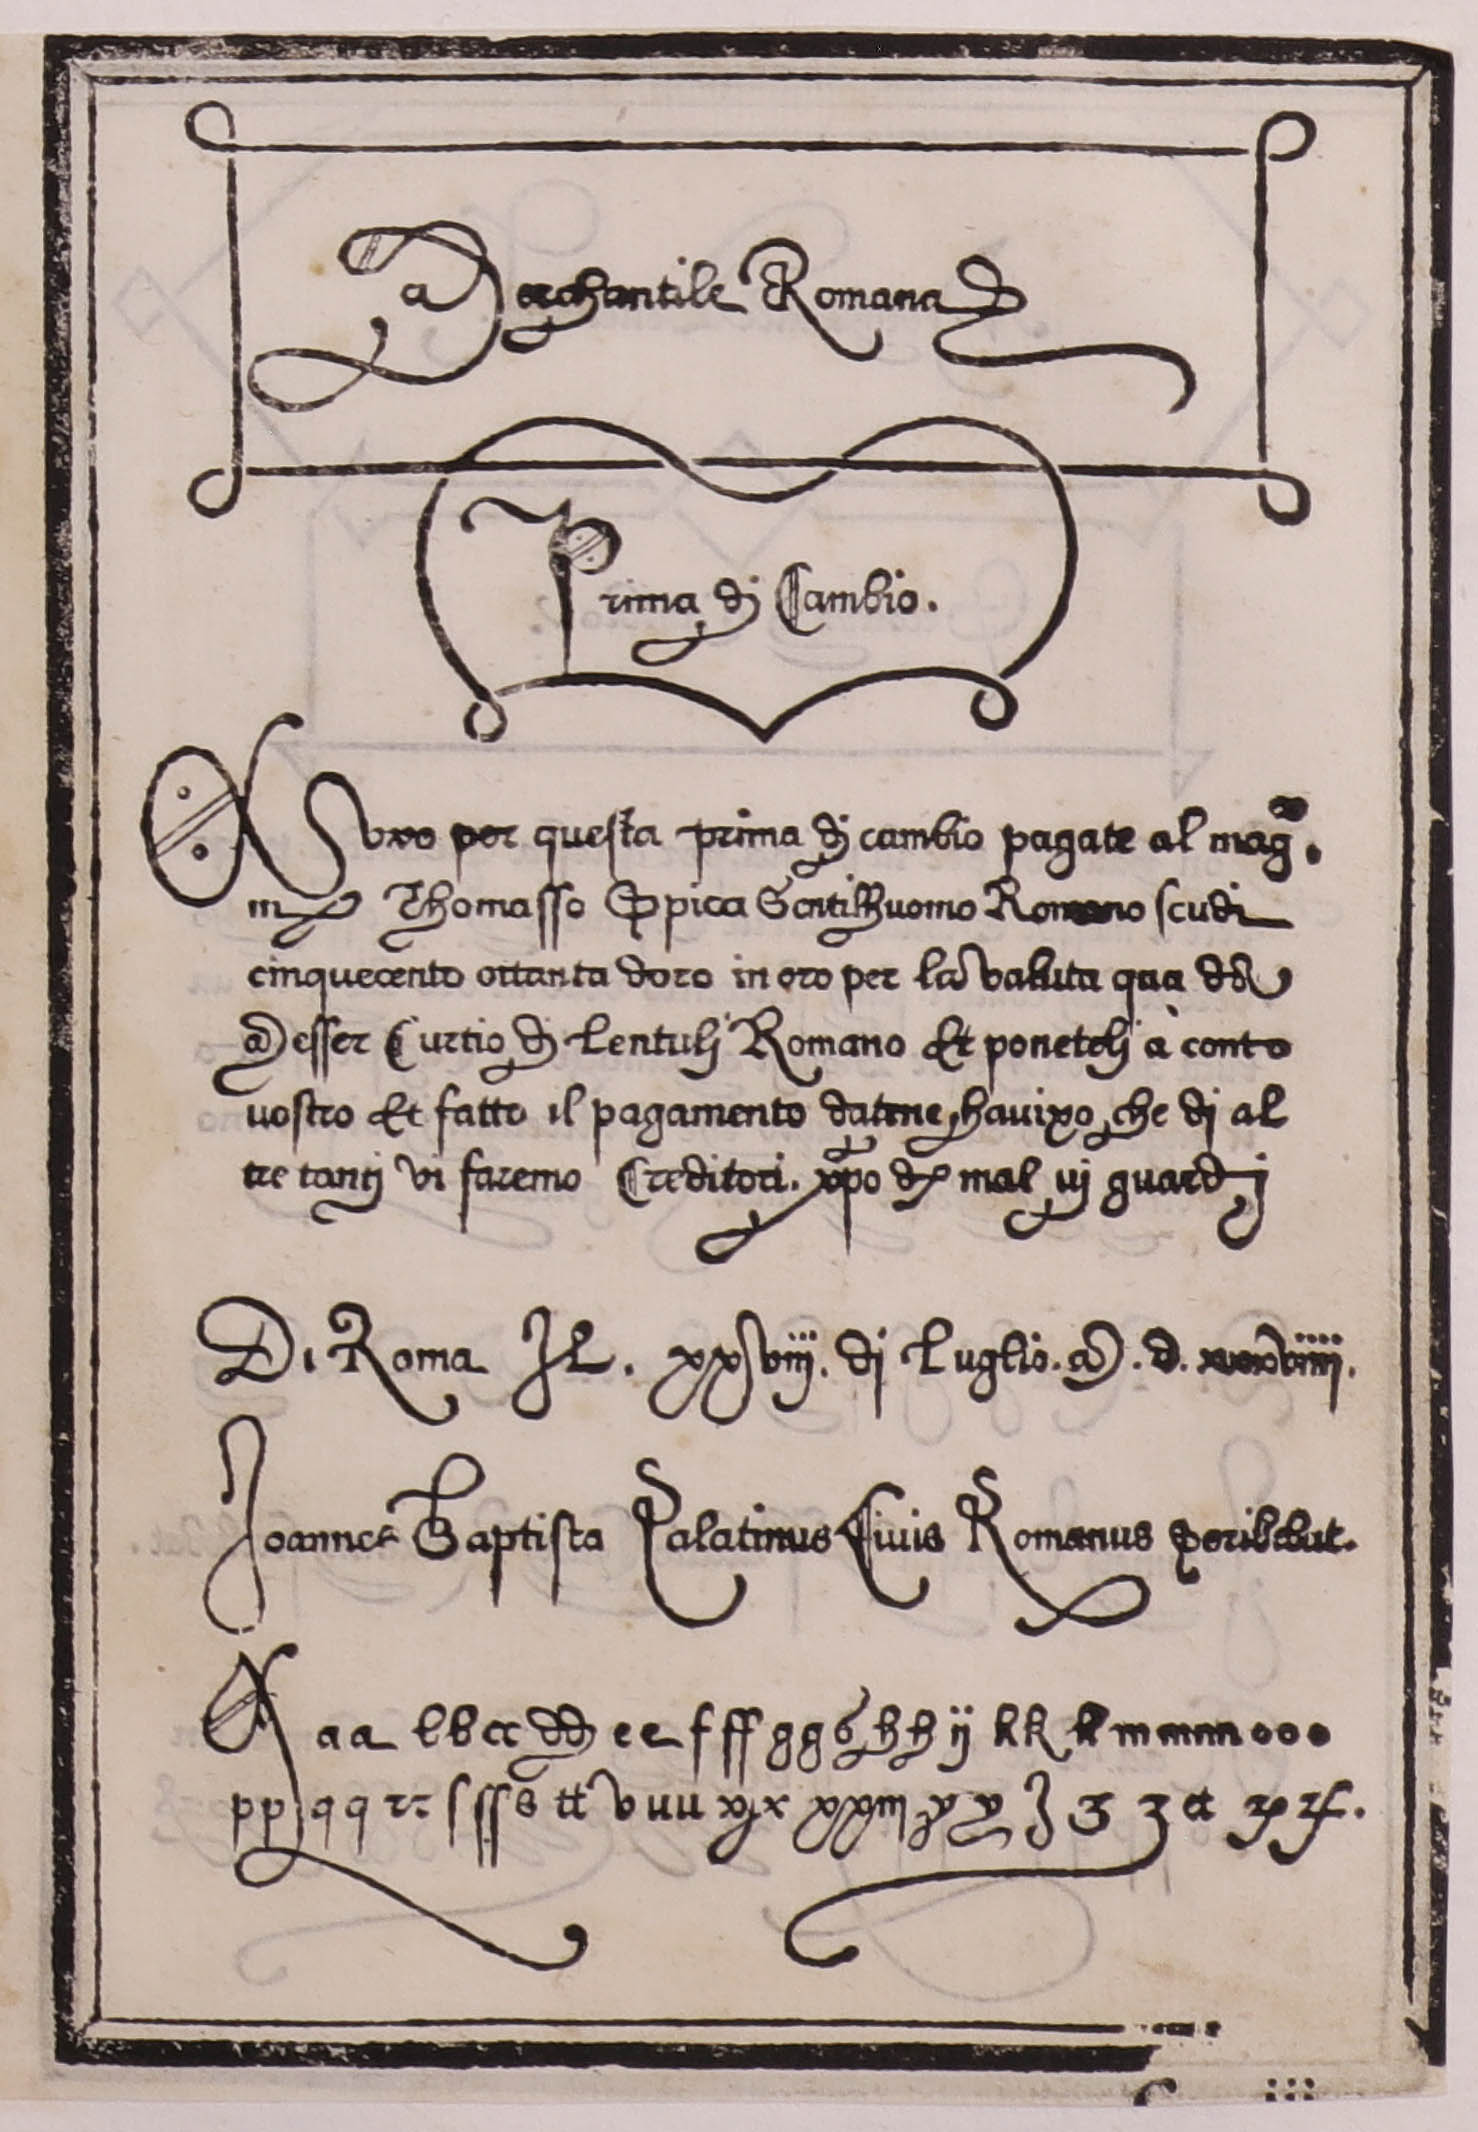 Merchantile Romana
Prima dj Cambio.
per questa prima dj cambio pagate al mag.
m Thomasso Spica Gentilhuomo Romano scudi
cinquecento ottanta doro in oro per la valuta qua da
Messer Curtio dj Lentulj Romano Et ponetelj à conto
uostro Et fatto il pagamento datene hauixo che dj al
tre tantj vi faremo Creditori. xpo de mal uj guardj
Di Roma Il. xxviij. dj Luglio. M. d. xxxviiij.
Joannes Baptista Palatinus Civis Romanus Scribebat.
A a a b b c c d d e e f ff g g g h h ij k k k m m m o o o
p p q q r r s ss s tt v u u x x x y y z z z et